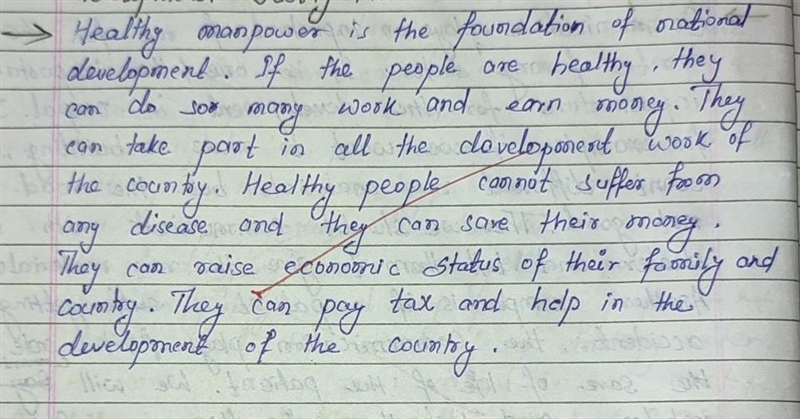 → Healthy manpower is the foundation of national
development. If the people are healthy, they
can do so many work and earn money. They
can take part in all the development work of
the country. Healthy people cannot suffer from
any disease and they can save their money.
They can raise economic status of their family and
country. They can pay tax and help in the
development of the country.